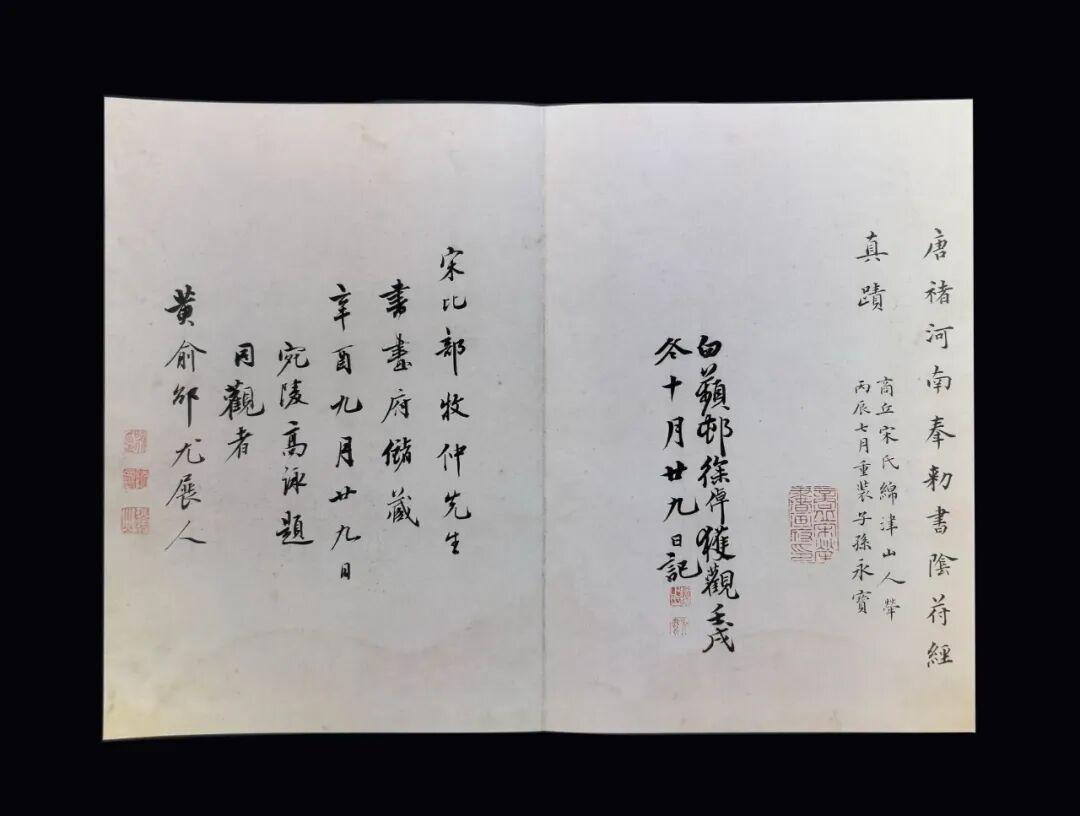 唐褚河南奉勅書陰符經
真蹟
商丘宋氏綿津山人犖
丙辰七月重装子孫永寳
白蘋邨徐倬獲觀壬戌
冬十月廿九日記
宋比部牧仲先生
書畫府儲藏
辛酉九月廿九日
宛陵高詠題
同觀者
黄俞邰尤展人